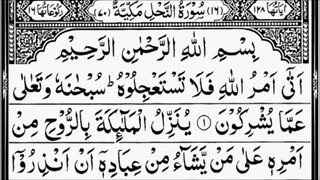 اٰیَاتُهَا ١٢٨ (١٦) سُوْرَةُ النَّحْلِ مَكِّیَّةٌ (٧٠) رُكُوْعَاتُهَا ١٦
بِسْمِ اللّٰهِ الرَّحْمٰنِ الرَّحِیْمِ
اَتٰۤی اَمْرُ اللّٰهِ فَلَا تَسْتَعْجِلُوْهُ ؕ سُبْحٰنَهٗ وَتَعٰلٰی
عَمَّا یُشْرِكُوْنَ ① یُنَزِّلُ الْمَلٰٓئِكَةَ بِالرُّوْحِ مِنْ
اَمْرِهٖ عَلٰی مَنْ یَّشَآءُ مِنْ عِبَادِهٖۤ اَنْ اَنْذِرُوْۤا